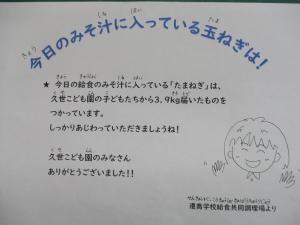 今日のみそ汁に入っている玉ねぎは!
★ 今日の給食のみそ汁に入っている「たまねぎ」は、
久世こども園の子どもたちから3.9kg届いたものを
つかっています。
しっかりあじわっていただきましょうね!
久世こども園のみなさん
ありがとうございました!!
遷喬学校給食共同調理場より